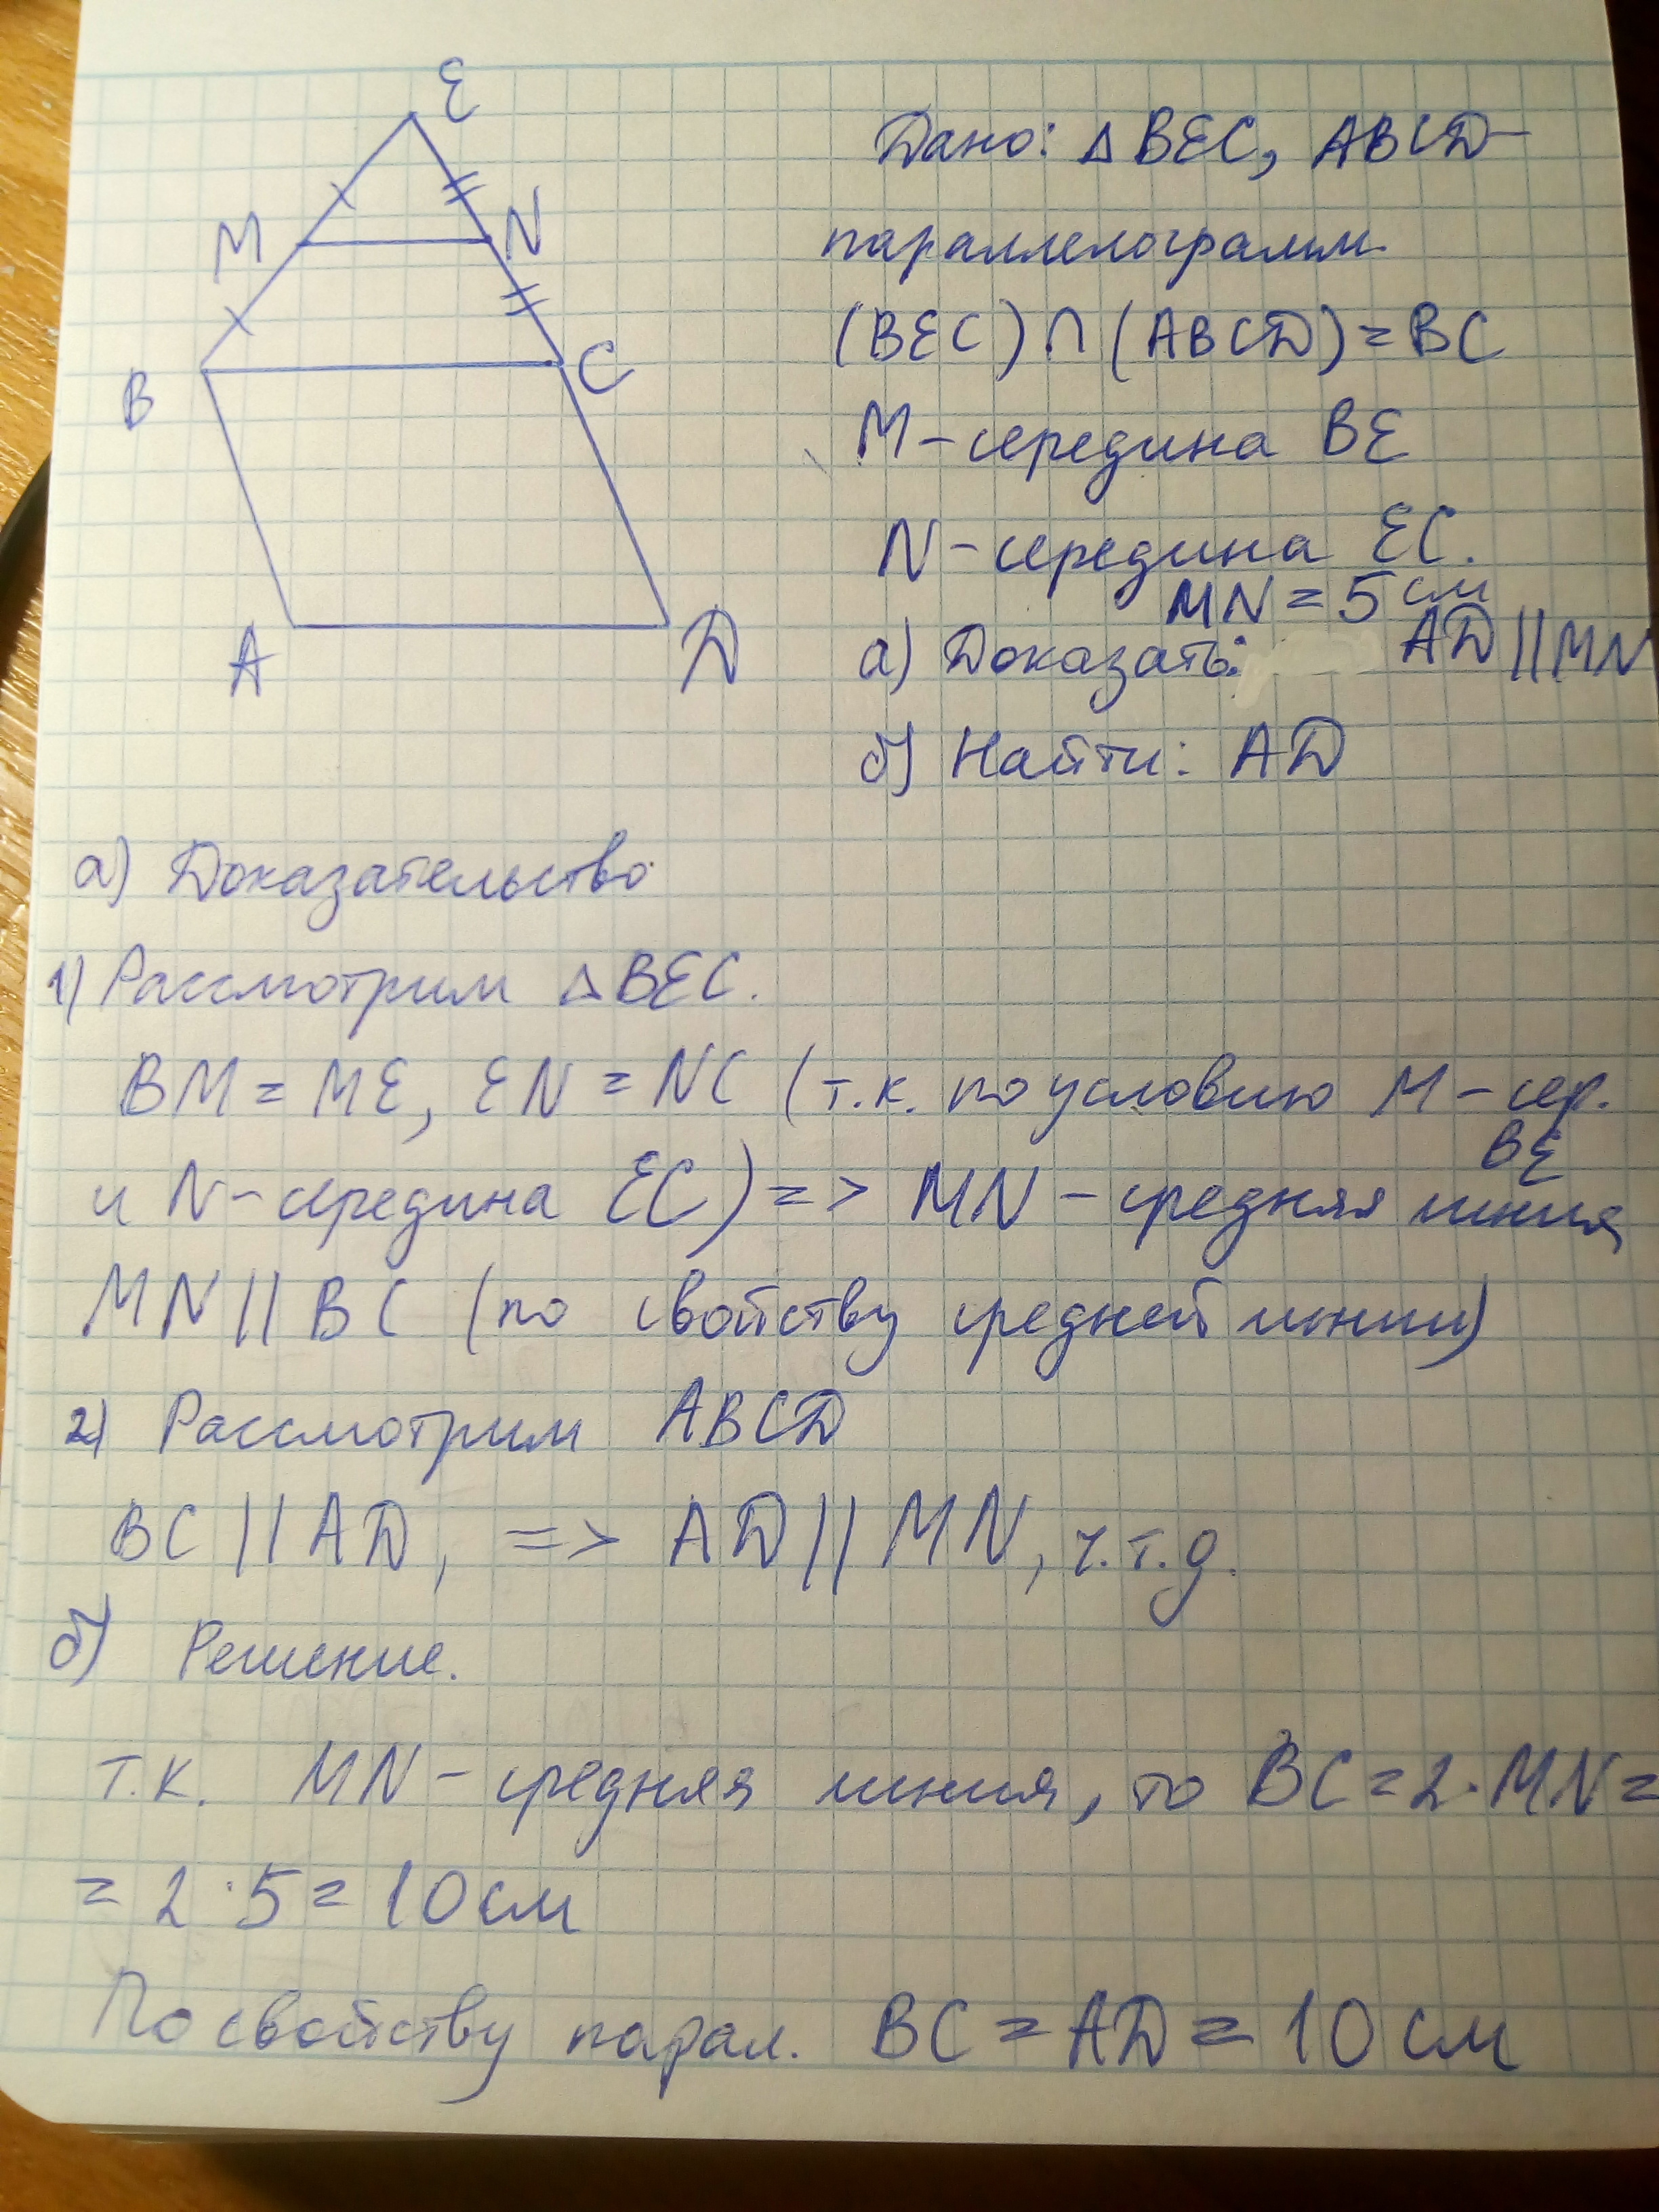 E
M
N
B
C
A
D
Дано: △ BEC, ABCD-
параллелограмм.
(BEC) ∩ (ABCD) = BC
M - середина BE
N - середина EC.
MN = 5 см
а) Доказать: AD || MN
б) Найти: AD
а) Доказательство
1) Рассмотрим △ BEC.
BM = ME, EN = NC (т.к. по условию M - сер.
BE
и N - середина EC) => MN - средняя линия,
MN || BC (по свойству средней линии)
2) Рассмотрим ABCD
BC || AD, => AD || MN, ч.т.д.
б) Решение.
т.к. MN - средняя линия, то BC = 2·MN =
= 2·5 = 10 см
По свойству парал. BC = AD = 10 см